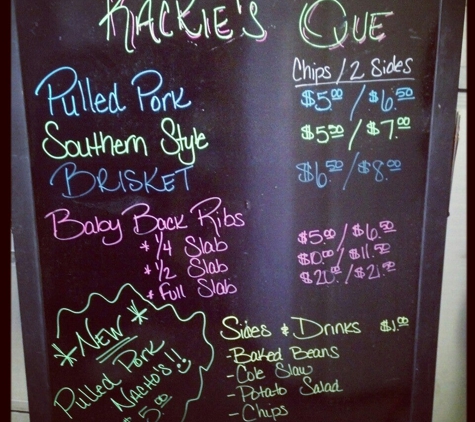 RACKIE'S QUE
Chips / 2 Sides
Pulled Pork $5.00 / $6.50
Southern Style $5.50 / $7.00
BRISKET $6.50 / $8.00
Baby Back Ribs
* 1/4 Slab $5.00 / $6.50
* 1/2 Slab $10.00 / $11.50
* Full Slab $20.00 / $21.50
* NEW *
Pulled Pork
NACHO'S!!
$5.00
Sides & Drinks $1.00
- Baked Beans
- Cole Slaw
- Potato Salad
- Chips